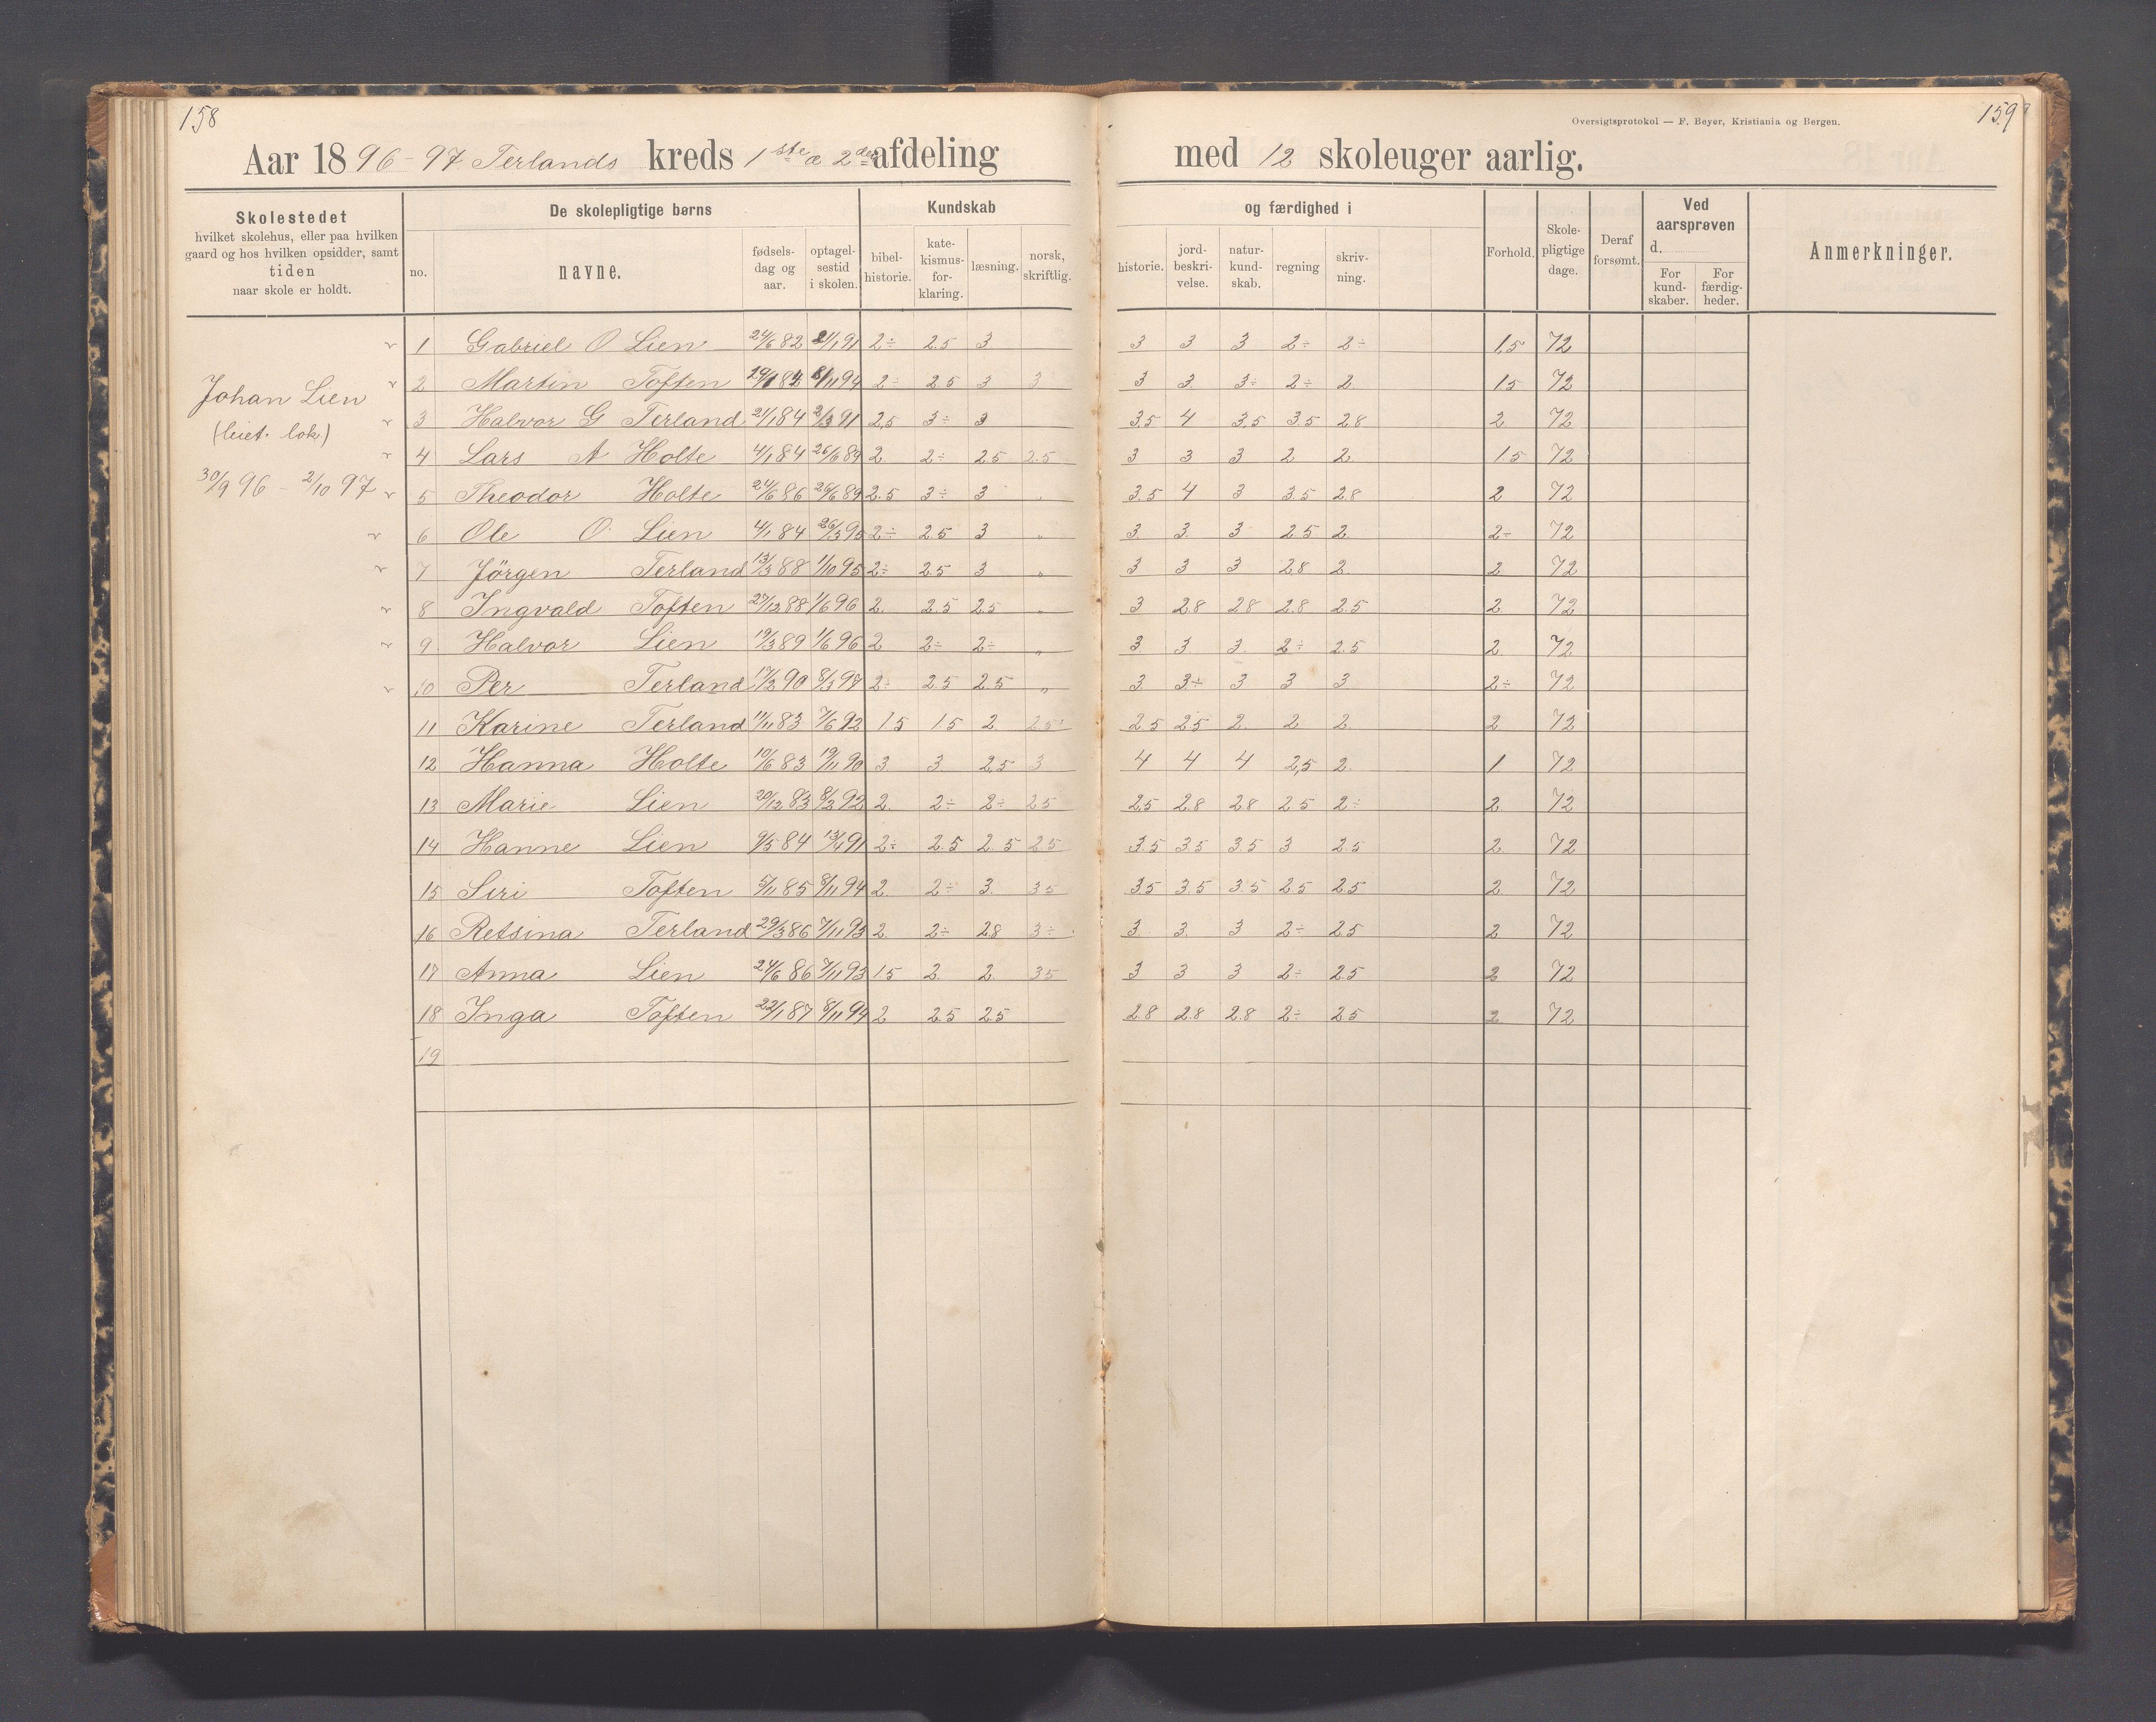 158
159
Oversigtsprotokol — F. Beyer, Kristiania og Bergen.
Aar 1896-97 Terlands kreds 1ste & 2den afdeling med 12 skoleuger aarlig.
Skolestedet
hvilket skolehus, eller paa hvilken
gaard og hos hvilken opsidder, samt
tiden
naar skole er holdt.
De skolepligtige børns
no.
navne.
fødsels-
dag og
aar.
optagel-
sestid
i skolen.
Kundskab
bibel-
historie.
kate-
kismus-
for-
klaring.
læsning.
norsk,
skriftlig.
og færdighed i
historie.
jord-
beskri-
velse.
natur-
kund-
skab.
regning
skriv-
ning.
Forhold.
Skole-
pligtige
dage.
Deraf
forsømt.
Ved
aarsprøven
d.
For
kund-
skaber.
For
færdig-
heder.
Anmerkninger.
Johan Lien
(leiet. lok.)
30/9 96 - 2/10 97
1 Gabriel O Lien 24/6 82 21/1 91 2÷ 2.5 3 3 3 3 2÷ 2÷ 1,5 72
2 Martin Toften 8/11 94 2÷ 2.5 3 3 3 3. 3÷ 2÷ 2 1.5 72
3 Halvor G Terland 21/1 84 2/3 91 2,5 3÷ 3 3.5 4 3.5 3.5 2.8 2 72
4 Lars A Holte 4/1 84 26/6 89 2. 2÷ 2.5 2.5 3 3 3 2 2. 1.5 72
5 Theodor Holte 24/6 86 26/6 89 2.5 3÷ 3 „ 3.5 4 3 3.5 2.8 2 72
6 Ole O. Lien 4/1 84 26/3 95 2÷ 2.5 3 „ 3. 3. 3 2.5 2. 2÷ 72
7 Jörgen Terland 13/3 88 1/10 95 2÷ 2.5 3 „ 3 3 3 2.8 2. 2 72
8 Ingvald Toften 27/12 88 1/6 96 2. 2.5 2.5 „ 3 2.8 2.8 2.8 2.5 2 72
9 Halvor Lien 19/3 89 1/6 96 2 2÷ 2÷ „ 3. 3 3. 2÷ 2.5 2. 72
10 Per Terland 17/2 90 8/3 97 2÷ 2.5 2.5 „ 3. 3÷ 3 3 3. 2÷ 72
11 Karine Terland 11/11 83 7/6 92 1.5 1.5 2. 2.5 2.5 2.5 2. 2 2. 2 72
12 Hanna Holte 10/6 83 19/11 90 3. 3. 2,5 3 4 4 4 2,5 2. 1 72
13 Marie Lien 20/12 83 8/3 92 2. 2÷ 2÷ 2.5 2.5 2.8 2.8 2.5 2÷ 2. 72
14 Hanne Lien 9/5 84 13/4 91 2÷ 2.5 2.5 2.5 3.5 3.5 3.5 3 2.5 2. 72
15 Siri Toften 5/11 85 8/11 94 2. 2÷ 3. 3.5 3.5 3.5 3.5 2.5 2.5 2 72
16 Retsina Terland 29/3 86 7/11 93 2. 2÷ 2.8 3÷ 3. 3. 3 2÷ 2.5 2 72
17 Anna Lien 24/6 86 7/11 93 1.5 2. 2. 3.5 3 3 3 2÷ 2.5 2 72
18 Inga Toften 22/1 87 8/11 94 2 2.5 2.5 2.8 2.8 2.8 2÷ 2.5 2 72
19